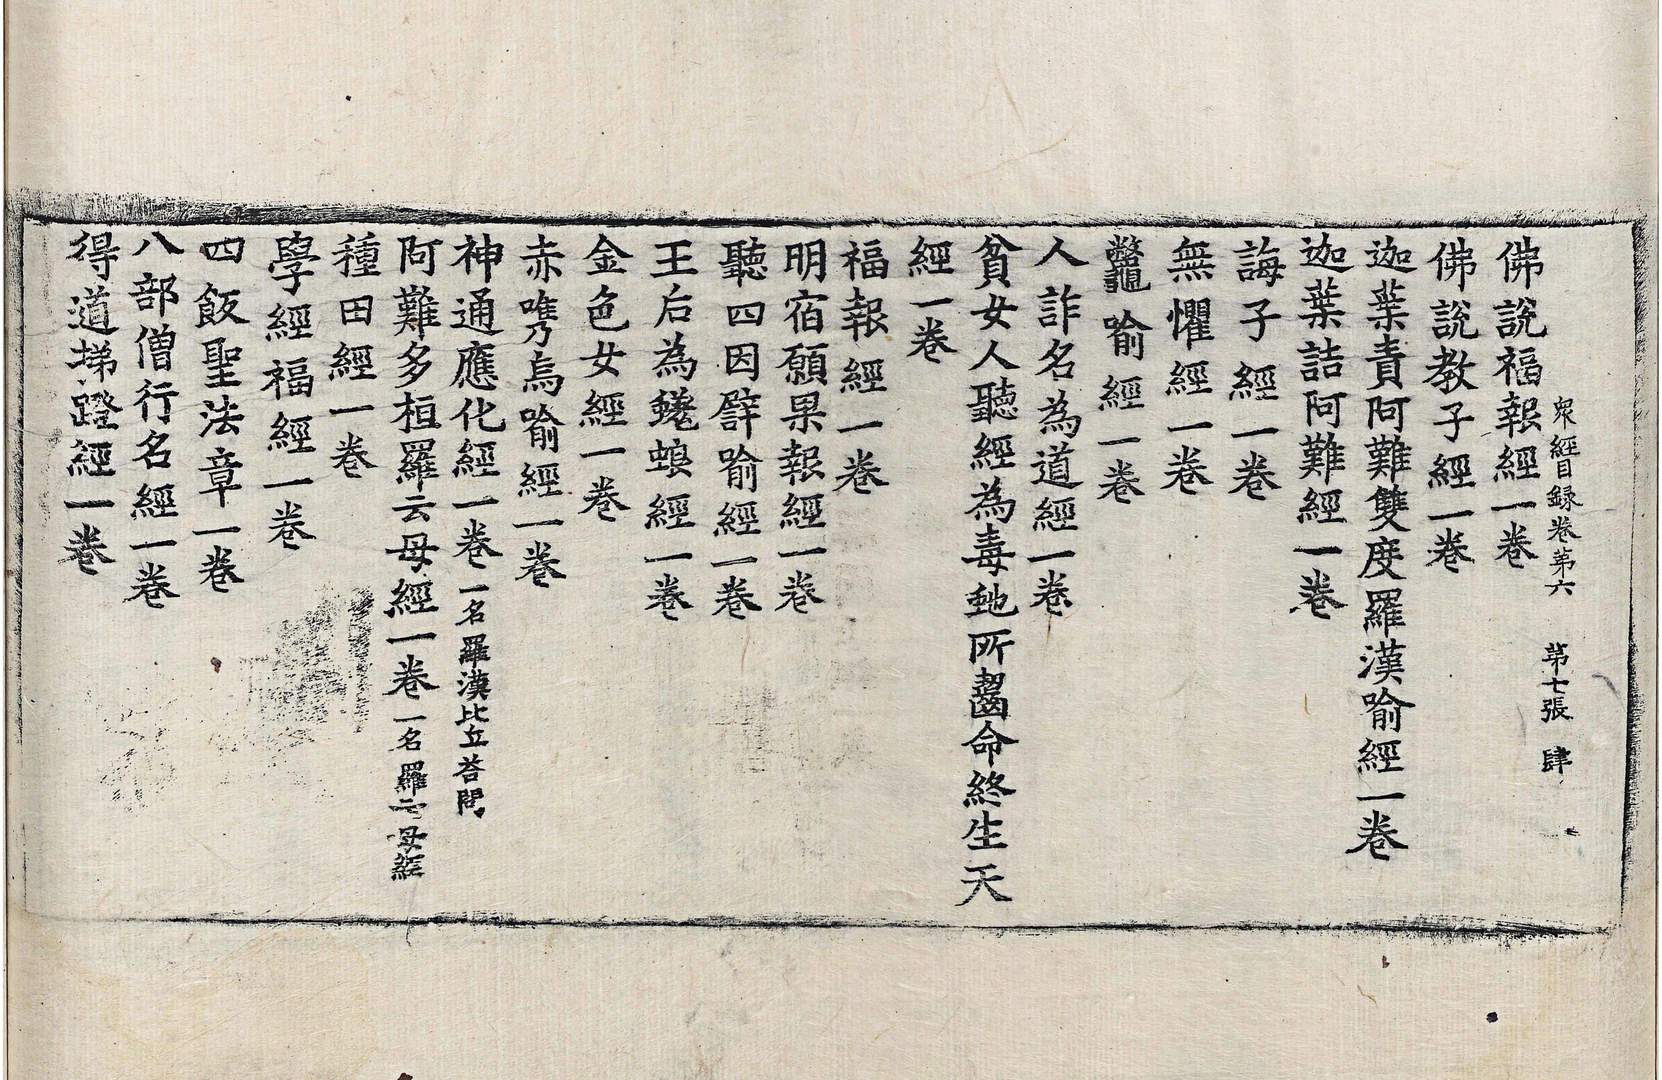 衆經目録卷第六　第七張　肆
佛說福報經一卷
佛說教子經一卷
迦葉責阿難雙度羅漢喻經一卷
迦葉詰阿難經一卷
誨子經一卷
無懼經一卷
鼈喻經一卷
人詐名為道經一卷
貧女人聽經為毒虵所齧命終生天
經一卷
福報經一卷
明宿願果報經一卷
聽四因譬喻經一卷
王后為蜣蜋經一卷
金色女經一卷
赤嘴烏喻經一卷
神通應化經一卷一名羅漢比丘荅問
阿難多桓羅云母經一卷一名羅云母經
種田經一卷
學經福經一卷
四飯聖法章一卷
八部僧行名經一卷
得道梯隥經一卷